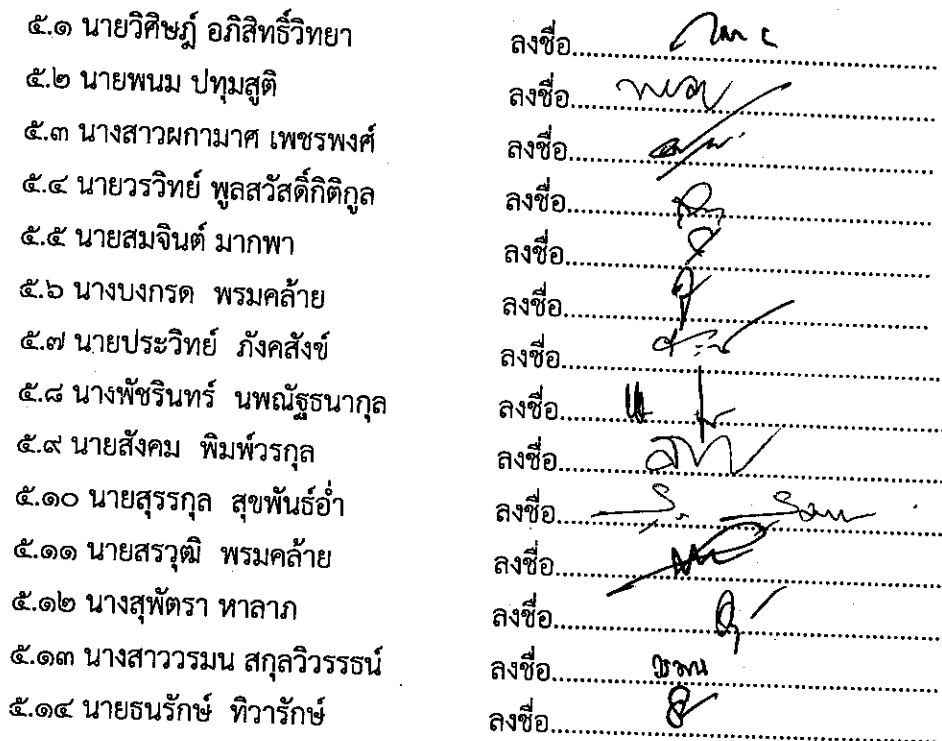 ๕.๑ นายวิศิษฎ์ อภิสิทธิ์วิทยา ลงชื่อ........................................
๕.๒ นายพนม ปทุมสูติ ลงชื่อ........................................
๕.๓ นางสาวผกามาศ เพชรพงศ์ ลงชื่อ........................................
๕.๔ นายวรวิทย์ พูลสวัสดิ์กิติกูล ลงชื่อ........................................
๕.๕ นายสมจินต์ มากพา ลงชื่อ........................................
๕.๖ นางบงกรด พรมคล้าย ลงชื่อ........................................
๕.๗ นายประวิทย์ ภังคสังข์ ลงชื่อ........................................
๕.๘ นางพัชรินทร์ นพณัฐธนากุล ลงชื่อ........................................
๕.๙ นายสังคม พิมพ์วรกุล ลงชื่อ........................................
๕.๑๐ นายสุรรกุล สุขพันธ์อ่ำ ลงชื่อ........................................
๕.๑๑ นายสรวุฒิ พรมคล้าย ลงชื่อ........................................
๕.๑๒ นางสุพัตรา หาลาภ ลงชื่อ........................................
๕.๑๓ นางสาววรมน สกุลวิวรรธน์ ลงชื่อ........................................
๕.๑๔ นายธนรักษ์ ทิวารักษ์ ลงชื่อ........................................